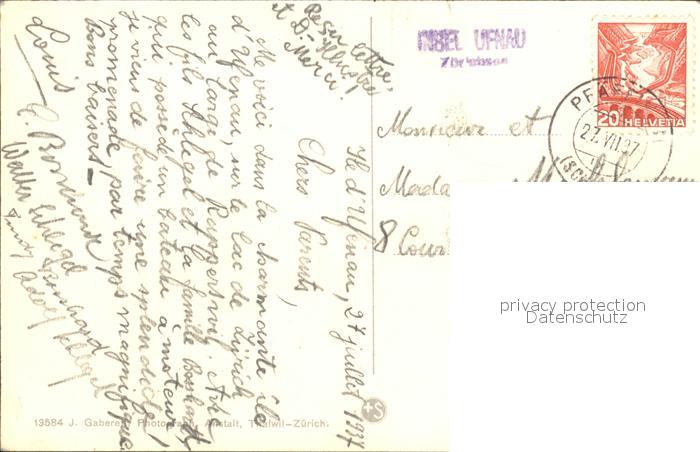 Reçu lettre,
et D.
Merci!
INSEL UFNAU
Zürichsee
HELVETIA
20
27.VII.37
Monsieur et
8 Cour
Ile d'Ufenau, 27 juillet 1937
Chers Parents,
Me voici dans la charmante île
d'Ufenau, sur le lac de Zürich
au large de Rapperswil. Avec
les fils Schlegel et la famille Bosshardt
qui possède un bateau à moteur,
je viens de faire une splendide
promenade, par temps magnifique
Bons baisers –
Louis
Walter Schlegel
Adolf Schlegel
13584 J. Gaberell, Photograph. Anstalt, Thalwil-Zürich.
privacy protection
Datenschutz